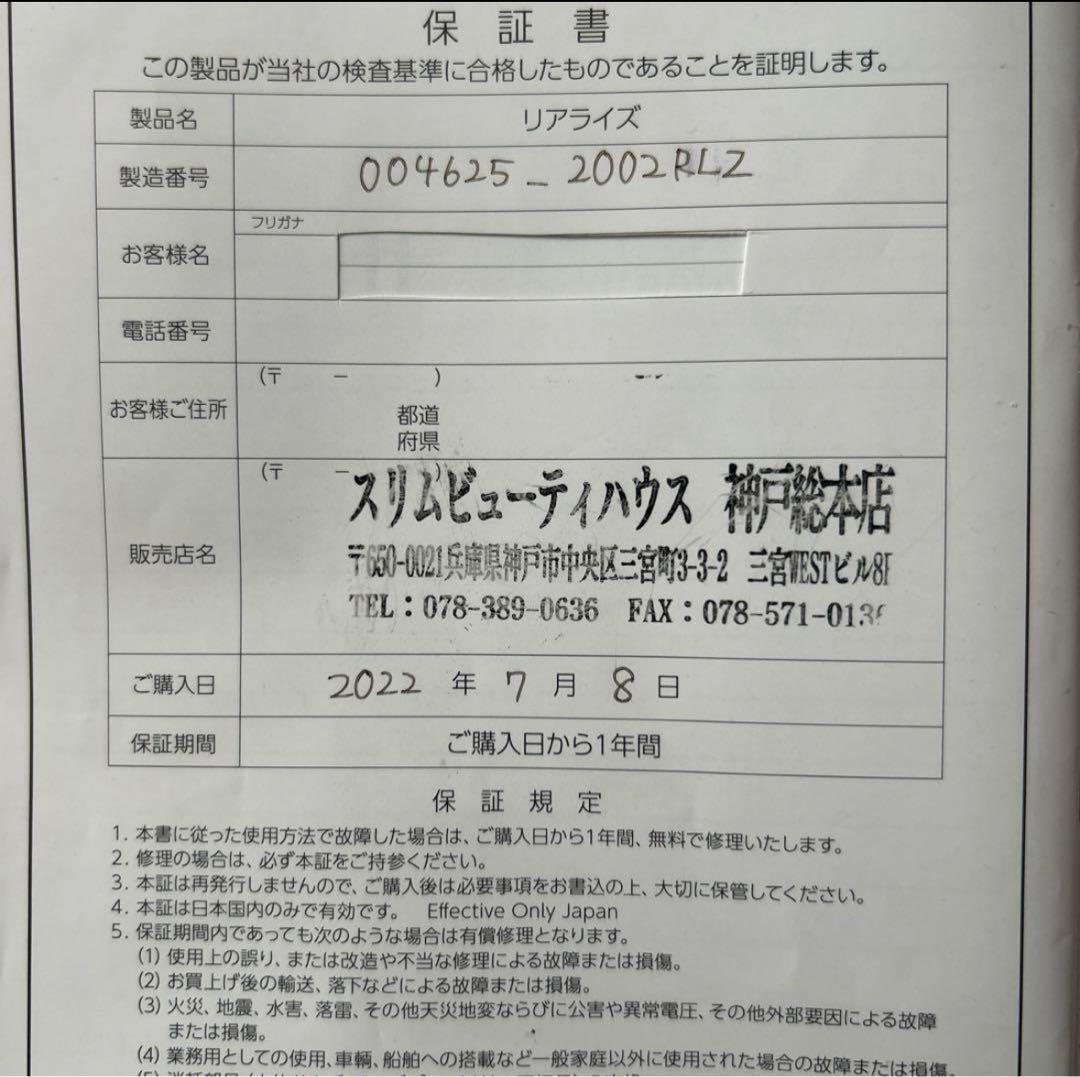 保証書
この製品が当社の検査基準に合格したものであることを証明します。
製品名 リアライズ
製造番号 004625-2002RLZ
フリガナ
お客様名
電話番号
お客様ご住所 (〒 - )
都道
府県
販売店名 (〒 - )
スリムビューティハウス 神戸総本店
〒650-0021兵庫県神戸市中央区三宮町3-3-2 三宮WESTビル8F
TEL:078-389-0636 FAX:078-571-013
ご購入日 2022 年 7 月 8 日
保証期間 ご購入日から1年間
保証規定
1. 本書に従った使用方法で故障した場合は、ご購入日から1年間、無料で修理いたします。
2. 修理の場合は、必ず本証をご持参ください。
3. 本証は再発行しませんので、ご購入後は必要事項をお書込の上、大切に保管してください。
4. 本証は日本国内のみで有効です。 Effective Only Japan
5. 保証期間内であっても次のような場合は有償修理となります。
(1) 使用上の誤り、または改造や不当な修理による故障または損傷。
(2) お買上げ後の輸送、落下などによる故障または損傷。
(3) 火災、地震、水害、落雷、その他天災地変ならびに公害や異常電圧、その他外部要因による故障
または損傷。
(4) 業務用としての使用、車輌、船舶への搭載など一般家庭以外に使用された場合の故障または損傷。